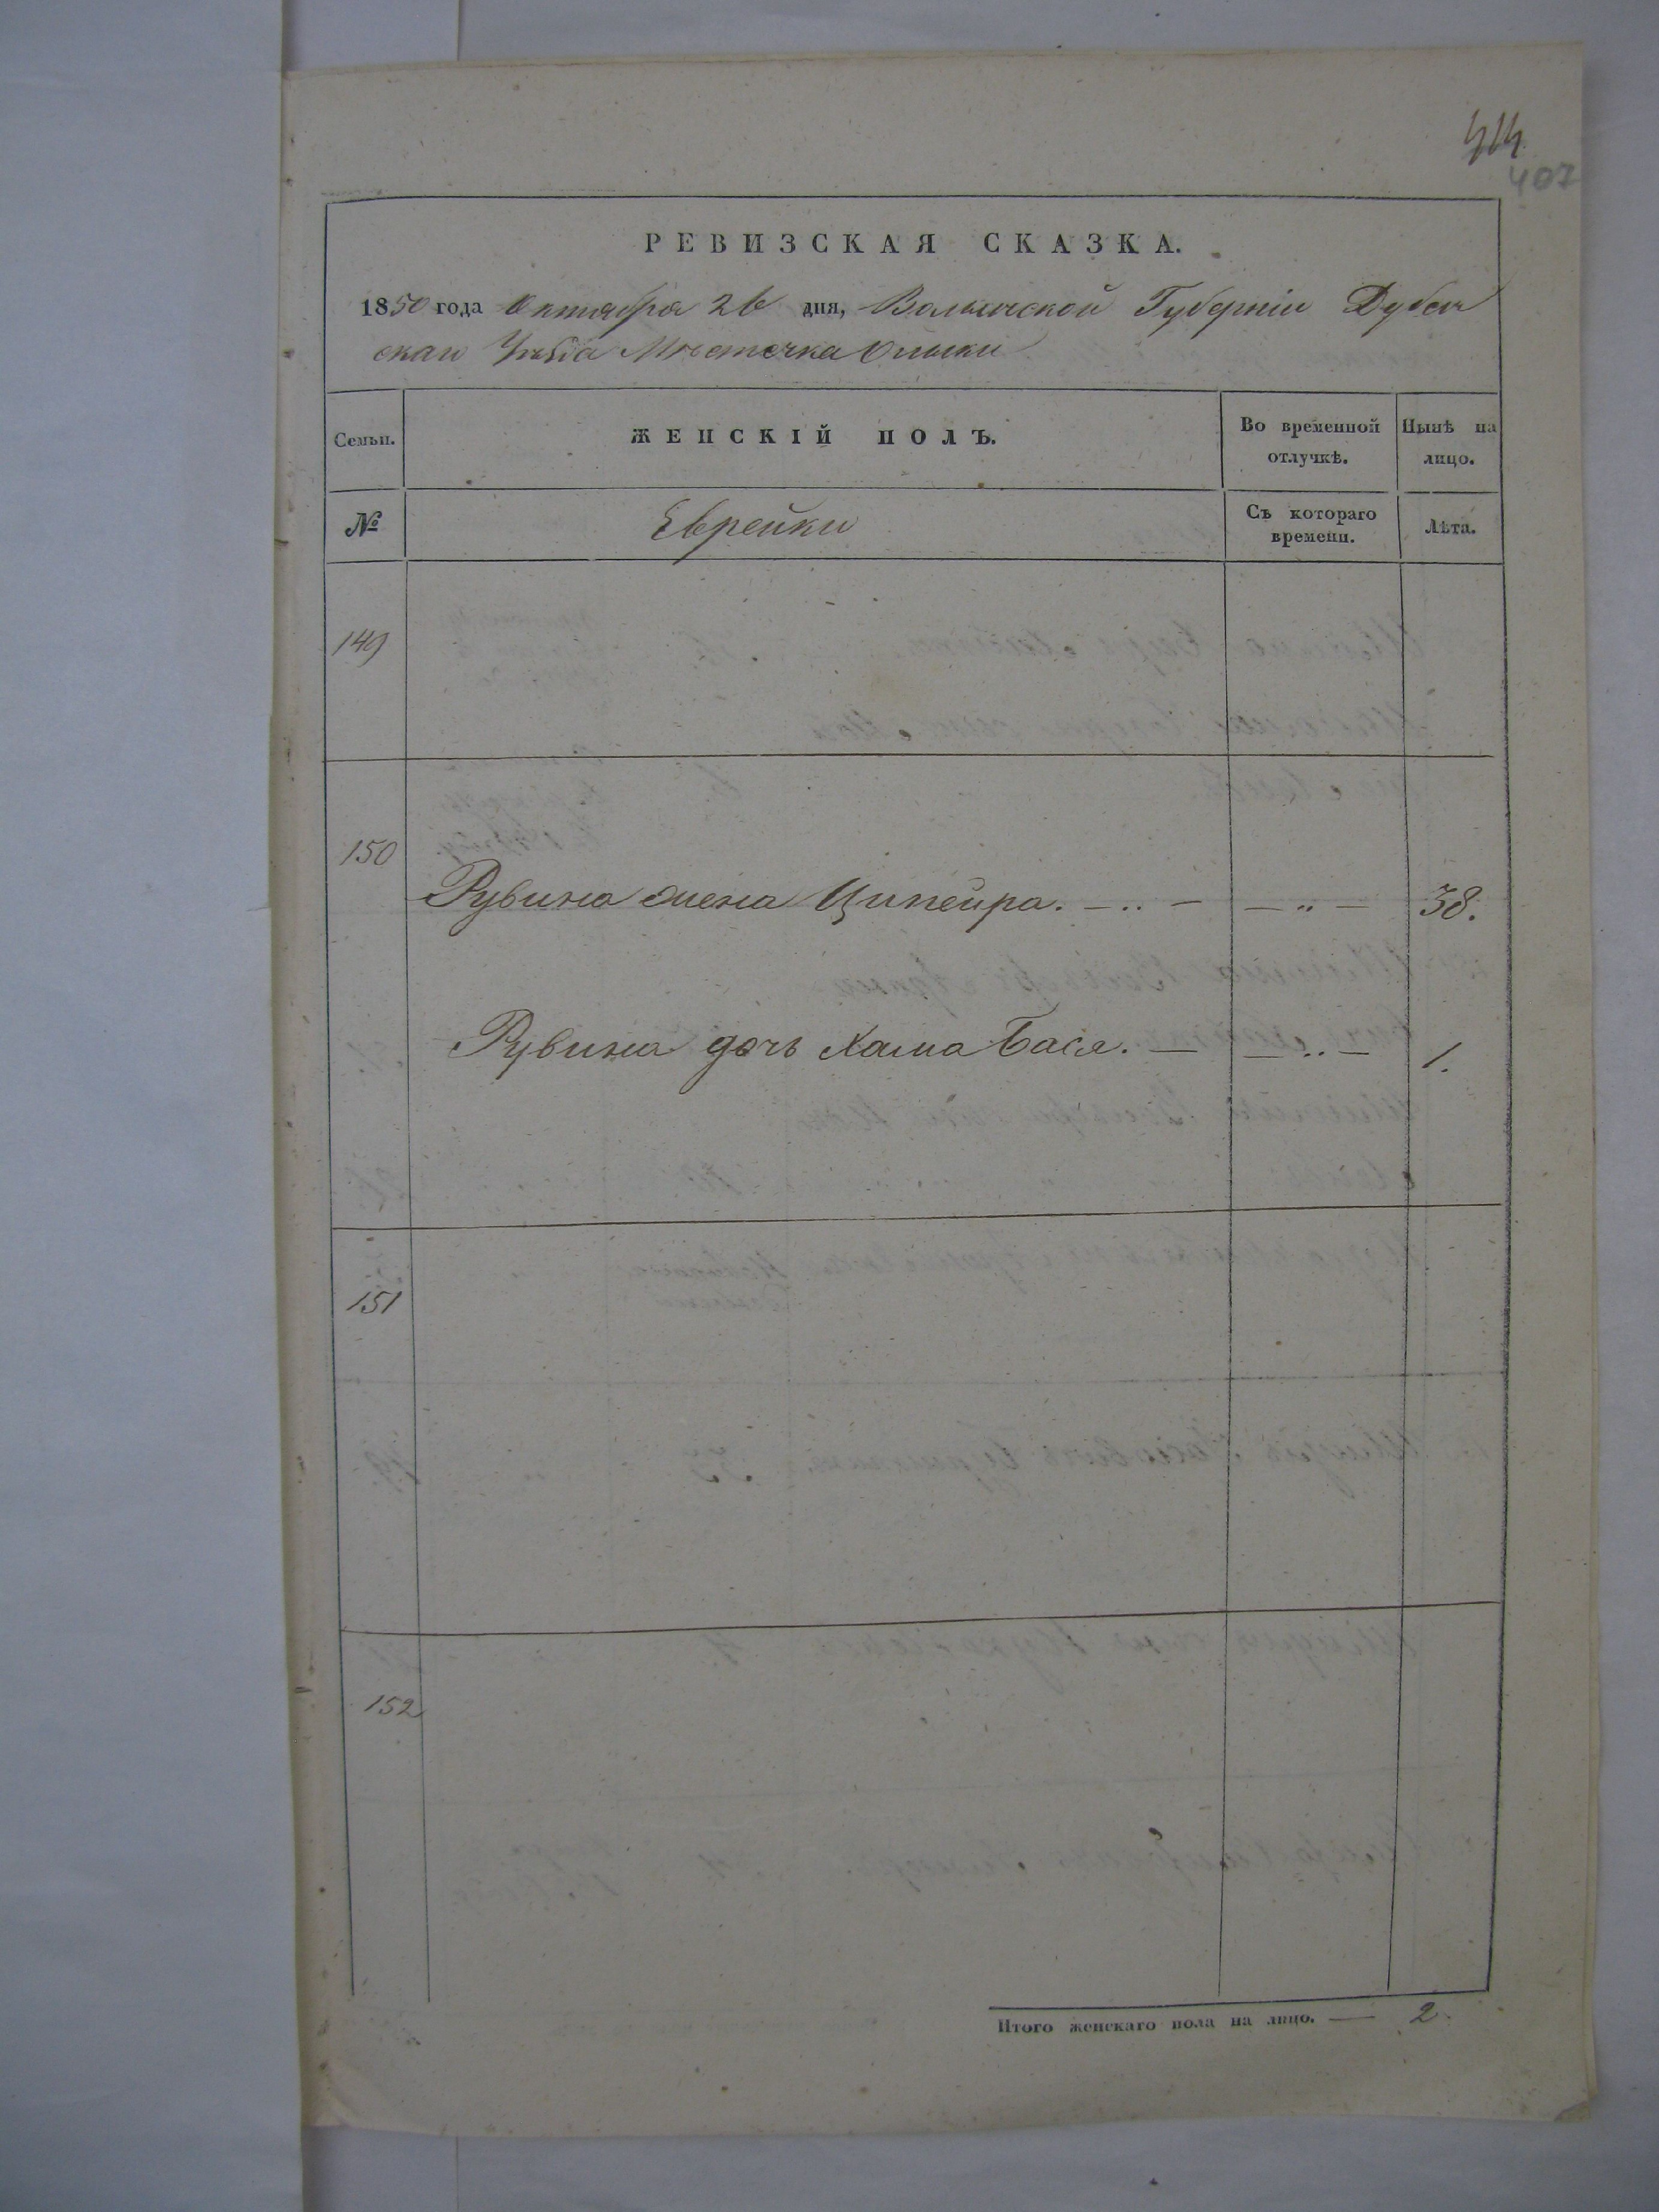 414
407
РЕВИЗСКАЯ СКАЗКА.
1850 года Октября 26 дня, Волынской Губерніи Дубен
скаго Уѣзда Мѣстечка Олыки
Семьи. ЖЕНСКІЙ ПОЛЪ. Во временной отлучкѣ. Нынѣ на лицо.
№ Еврейки Съ котораго времени. Лѣта.
149
150
Рувина жена Ципейра. — „ — — „ — 38.
Рувина дочь Хама Бася. — — „ — 1.
151
152
Итого женскаго пола на лицо. — 2.